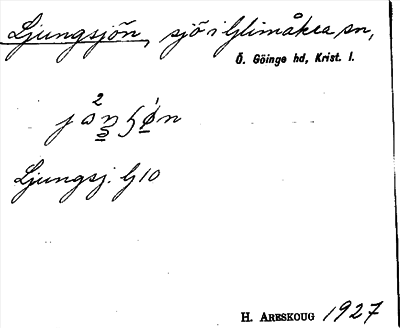 Ljungsjön, sjö i Glimåkra sn,
Ö. Göinge hd, Krist. l.
Ljungsj. G 10
H. Areskoug 1927